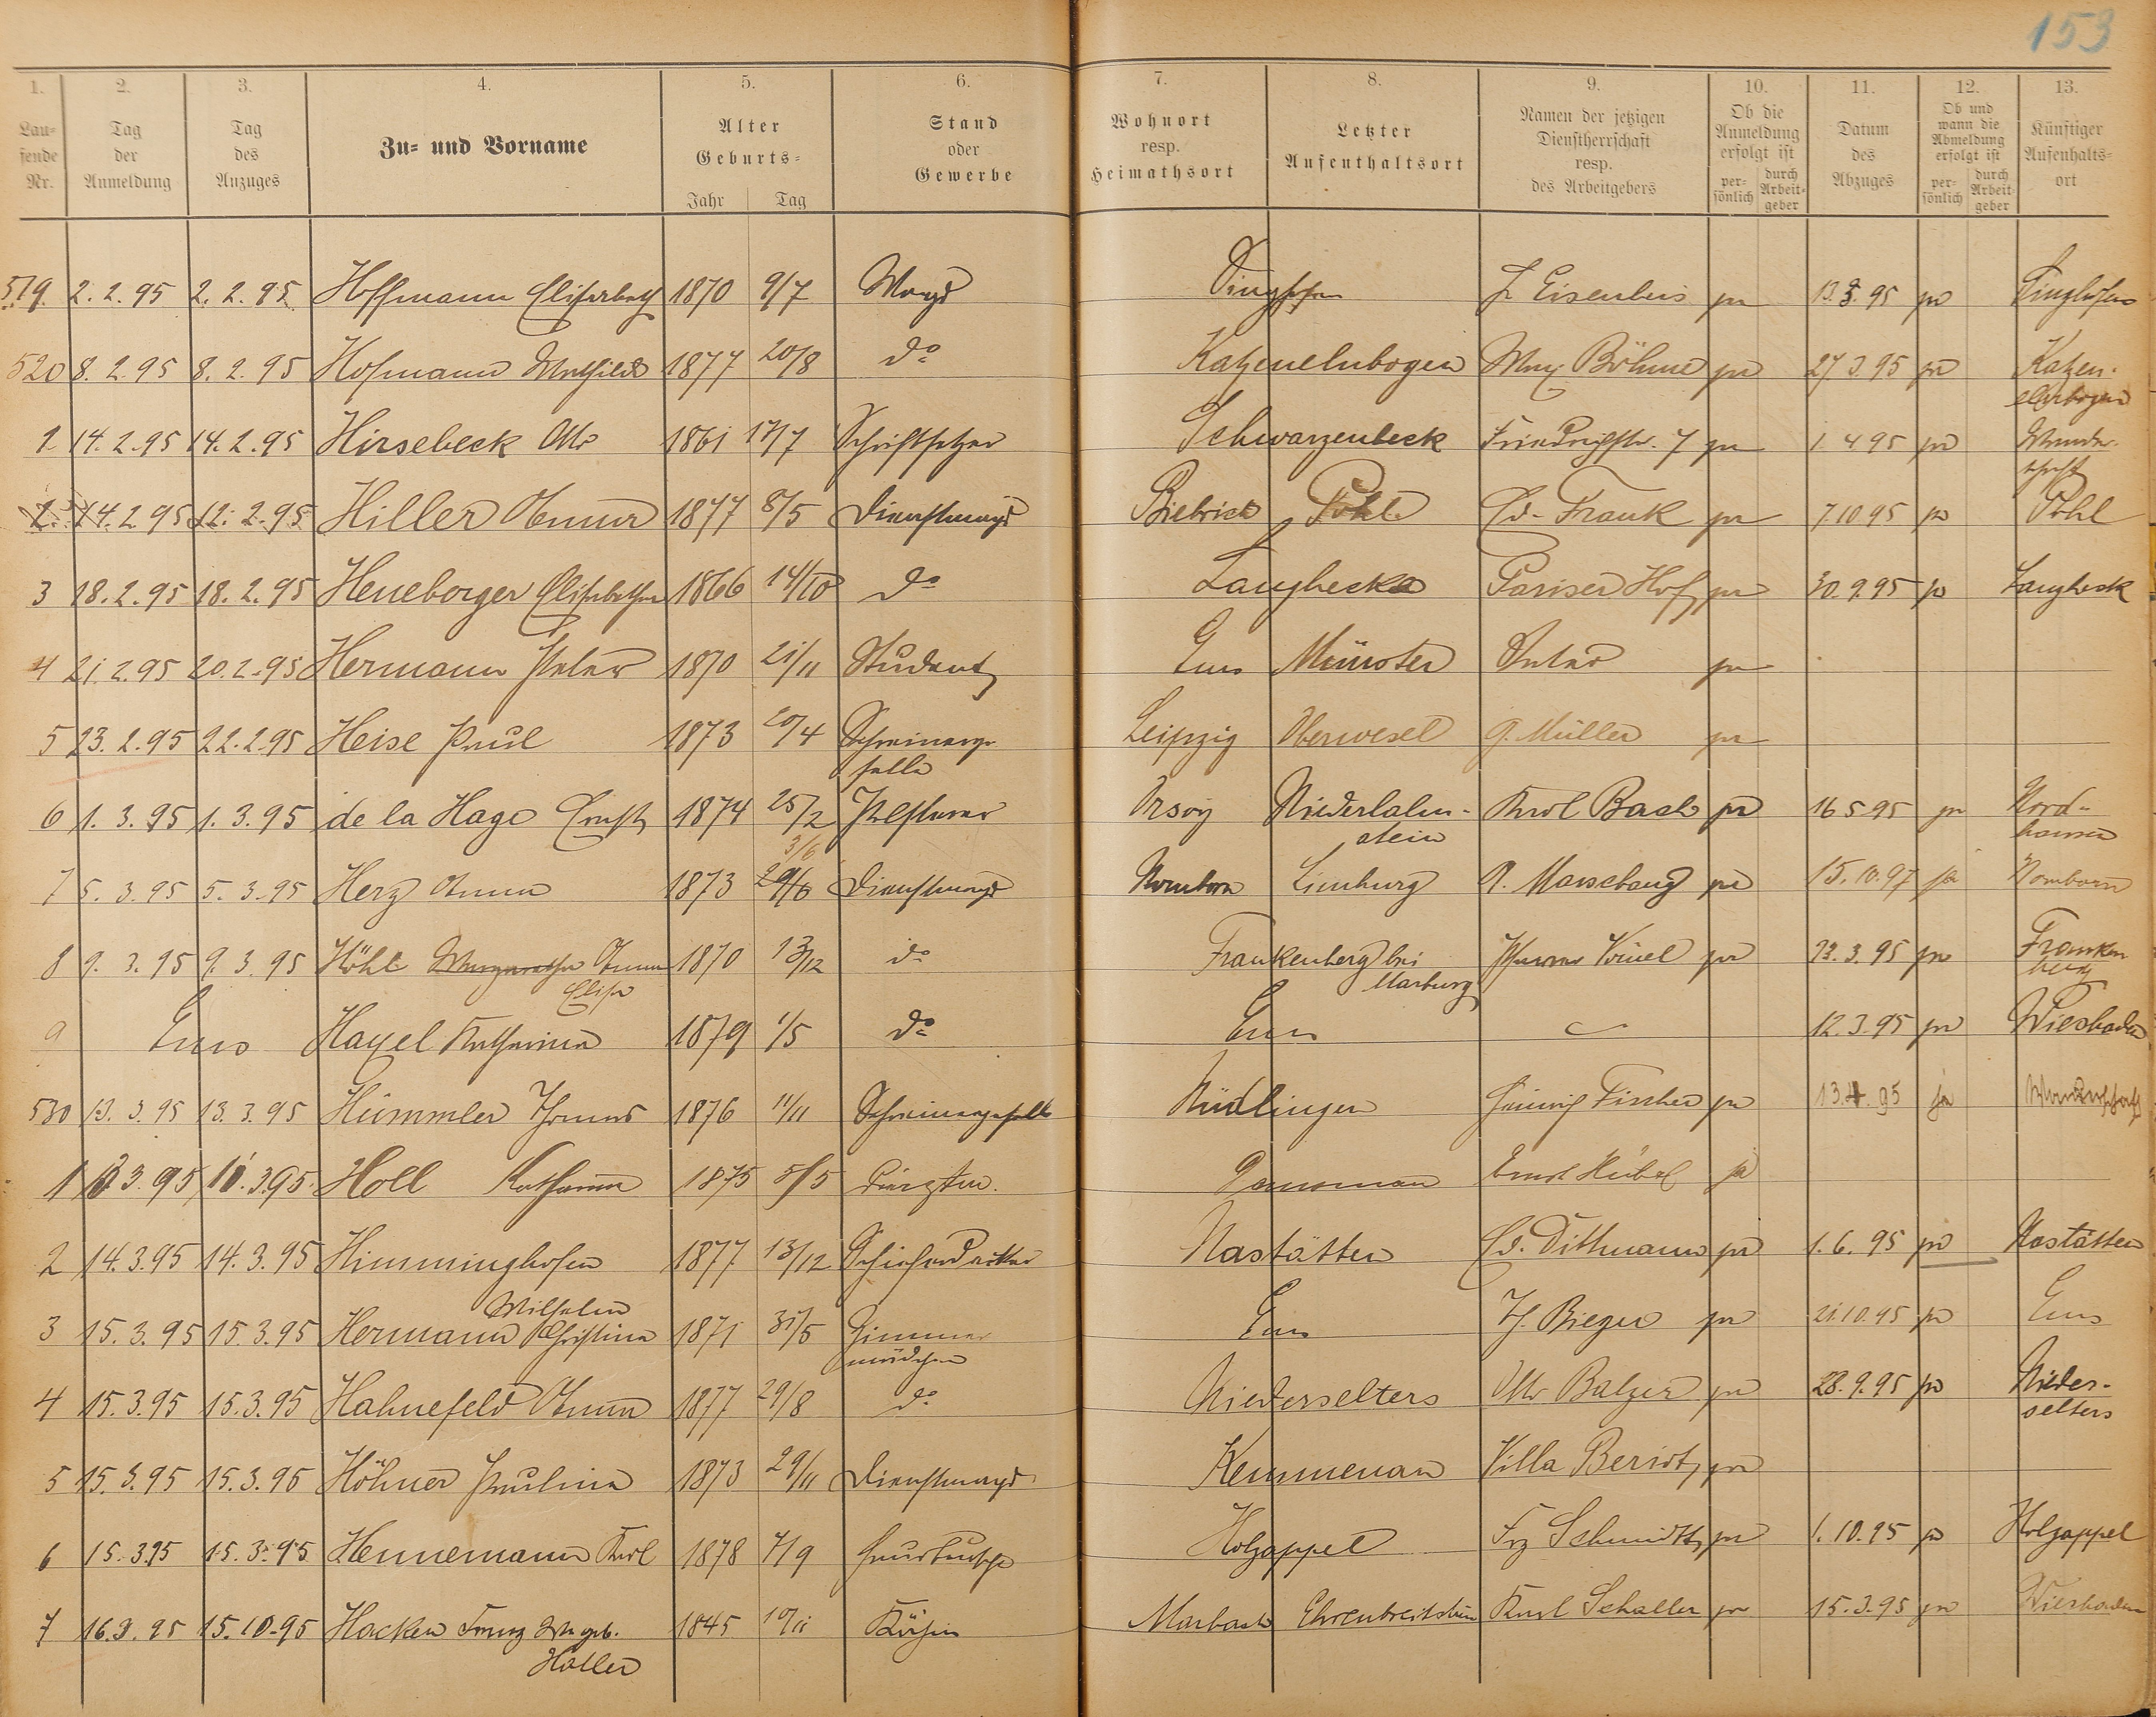 153
1. 2. 3. 4. 5. 6. 7. 8. 9. 10. 11. 12. 13.
Lau=
fende
Nr.
Tag
der
Anmeldung
Tag
des
Anzuges
Zu= und Vorname
Alter
Geburts=
Jahr Tag
Stand
oder
Gewerbe
Wohnort
resp.
Heimathsort
Letzter
Aufenthaltsort
Namen der jetzigen
Dienstherrschaft
resp.
des Arbeitgebers
Ob die
Anmeldung
erfolgt ist
per=
sönlich
durch
Arbeit=
geber
Datum
des
Abzuges
Ob und
wann die
Abmeldung
erfolgt ist
per=
sönlich
durch
Arbeit
geber
Künftiger
Aufenhalts=
ort
519. 2. 2. 95 2. 2. 95 Hoffmann Elisabeth 1870 9/7 Magd Singhofen J. Eisenbeis ja 13.3.95 ja Singhofen
520 8. 2. 95 8. 2. 95 Hofmann Mathilde 1877 20/8 do Katzenelnbogen Max Böhme ja 27.3.95 ja Katzen-
elnbogen
1 14. 2. 95 14. 2. 95 Hirsebeck Otto 1861 17/7 Schriftsetzer Schwarzenbeck Friedrichstr. 7 ja 1.4 95 ja Wander-
schaft
2. 14. 2. 95 12. 2. 95 Hiller Anna 1877 8/5 Dienstmagd Biebrich Pohl Ed. Frank ja 7.10 95 ja Pohl
3 18. 2. 95 18. 2. 95 Heneborger Elisabetha 1866 14/10 do Langhecke Pariser Hof ja 30. 9.95 ja Langheck
4 21. 2. 95 20. 2. 95 Hermann Peter 1870 21/11 Student Ems Münster Vater ja
5 23. 2. 95 22. 2. 95 Heise Paul 1873 20/4 Schreinerge-
selle Leipzig Oberwesel G. Müller ja
6 1. 3. 95 1. 3. 95 de la Hage Ernst 1874 25/2 Orsoy Niederlahn-
stein Karl Bach ja 16 5 95 ja Nord-
hausen
3/6
7 5. 3. 95 5. 3. 95 Herz Anna 1873 29/6 Dienstmagd Nomborn Limburg ja 15.10.97 ja Nomborn
8 9. 3. 95 9. 3. 95 Höhl Margaretha Anna
Elise 1870 13/12 do Frankenberg bei
Marburg Pfarrer ja 23. 3. 95 ja Franken
berg
9 Ems Hayel Katharina 1879 1/5 do Ems 12. 3. 95 ja Wiesbaden
530 13. 3. 95 13. 3. 95 Hümmler Thomas 1876 11/11 Schreinergeselle Nüdlingen Heinrich Fischer ja 13.4.95 ja Wanderschaft
1 3. 95 3.95 Holl Katharina 1875 5/5 ja
2 14. 3. 95 14. 3. 95 Himminghofen
Wilhelm 1877 13/12 Schieferdecker Nastätten Ed. Dittmann ja 1. 6. 95 ja Nastätten
3 15. 3. 95 15. 3. 95 Hermann Christina 1871 31/5 Zimmer
mädchen Ems Th. Bieger ja 21.10.95 ja Ems
4 15. 3. 95 15. 3. 95 Hahnefeld Anna 1877 29/8 do Niederselters Otto Balzer ja 28. 9. 95 ja Nieder-
selters
5 15. 3. 95 15. 3. 95 Höhner Paulina 1873 29/11 Dienstmagd Kemmenau Villa Beriot ja
6 15. 3 95 15. 3. 95 Hennemann Karl 1878 7/9 Hausbursche Holzappel Frz Schmidt ja 1. 10. 95 ja Holzappel
7 16. 3. 95 15. 10. 95 Hacken Franz geb.
Haller 1845 10/11 Köchin Marbach Ehrenbreitstein Karl Schaller ja 15. 3. 95 ja Wiesbaden